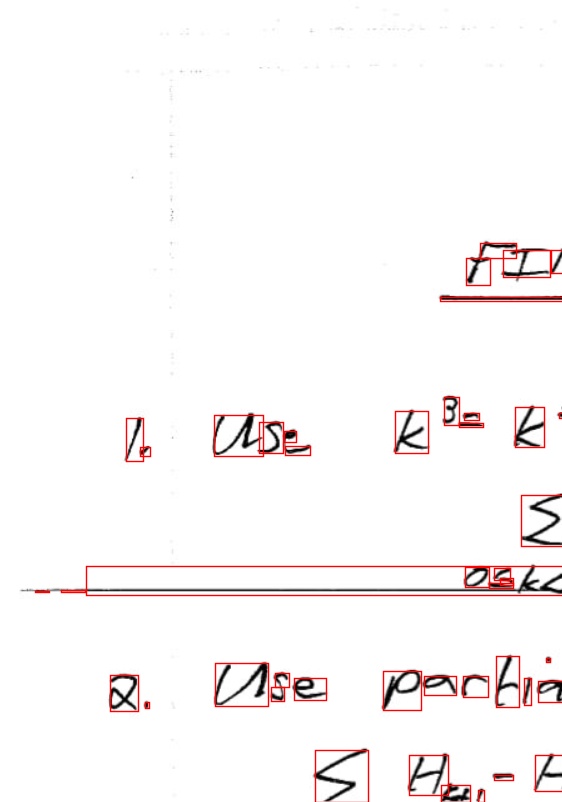 FIN
1. Use k³ = k
Σ
0≤k<
2. Use partia
Σ H - H